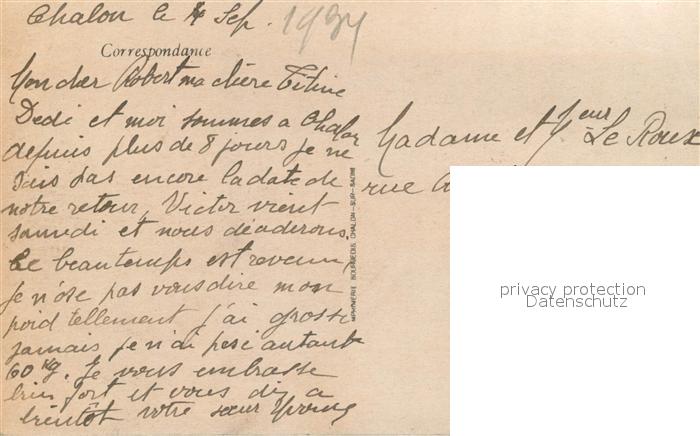 Chalon le 4 Sep. 1934
Correspondance
Mon cher Robert ma chère Titine
Dedi et moi sommes a Chalon
depuis plus de 8 jours je ne
sais pas encore la date de
notre retour, Victor vient
samedi et nous déciderons.
Le beau temps est revenu,
je n'ose pas vous dire mon
poid tellement j'ai grossi
jamais je n'ai pesé autant
60 Kg. Je vous embrasse
bien fort et vous dis a
bientôt votre sœur Yvonne
Madame et Mr Le Roux
rue
IMPRIMERIE BOURGEOIS, CHALON-SUR-SAÔNE
privacy protection
Datenschutz